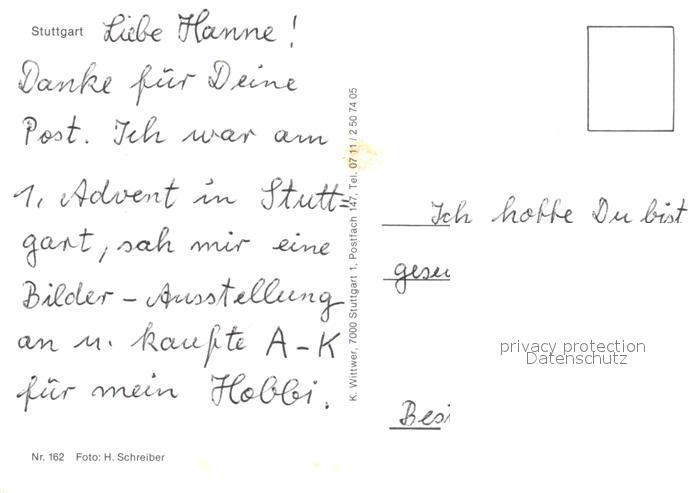 Stuttgart Liebe Hanne!
Danke für Deine
Post. Ich war am
1, Advent in Stutt=
gart, sah mir eine
Bilder - Ausstellung
an u. kaufte A-K
für mein Hobbi.
Nr. 162 Foto: H. Schreiber
K. Wittwer, 7000 Stuttgart 1, Postfach 147, Tel. 07 11 / 2 50 74 05
Ich hoffe Du bist
privacy protection
Datenschutz